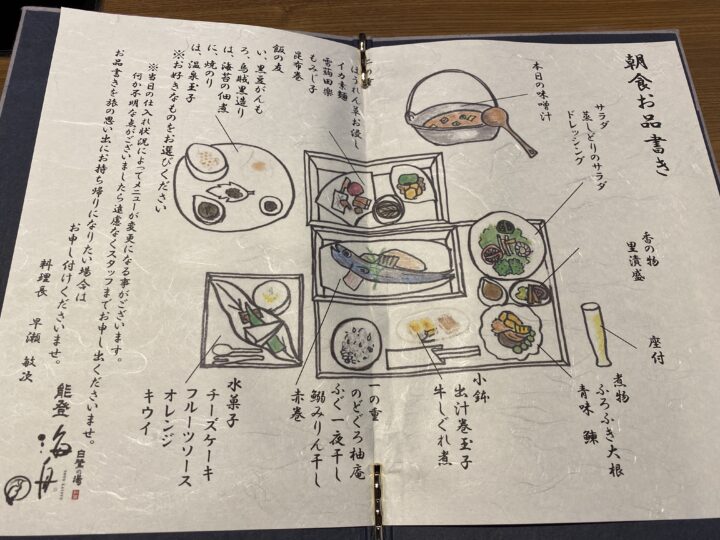 朝食お品書き
本日の味噌汁
サラダ
蒸しどりのサラダ
ドレッシング
香の物
里漬盛
座付
煮物
ふろふき大根
青味 鰊
小鉢
出汁巻玉子
牛しぐれ煮
一の重
のどぐろ柚庵
ふぐ一夜干し
鰯みりん干し
赤巻
二の重
ほうれん菜お浸し
イカ素麺
雪蒟田楽
もみじ子
昆布巻
飯の友
い、黒豆がんも
ろ、烏賊黒造り
は、海苔の佃煮
に、焼のり
ほ、温泉玉子
※お好きなものをお選びください
水菓子
チーズケーキ
フルーツソース
オレンジ
キウイ
※当日の仕入れ状況によってメニューが変更になる事がございます。
何か不明な点がございましたら遠慮なくスタッフまでお申し出くださいませ。
お品書きを旅の思い出にお持ち帰りになりたい場合は
お申し付けくださいませ。
料理長 早瀬 敏次
能登 海舟
白鷺の湯